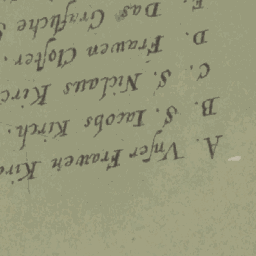 A. Vnſer Frawen Kirc
B. S. Iacobs Kirch.
C. S. Niclaus Kirc
D. Frawen Cloſter.
E. Das Gräfliche S